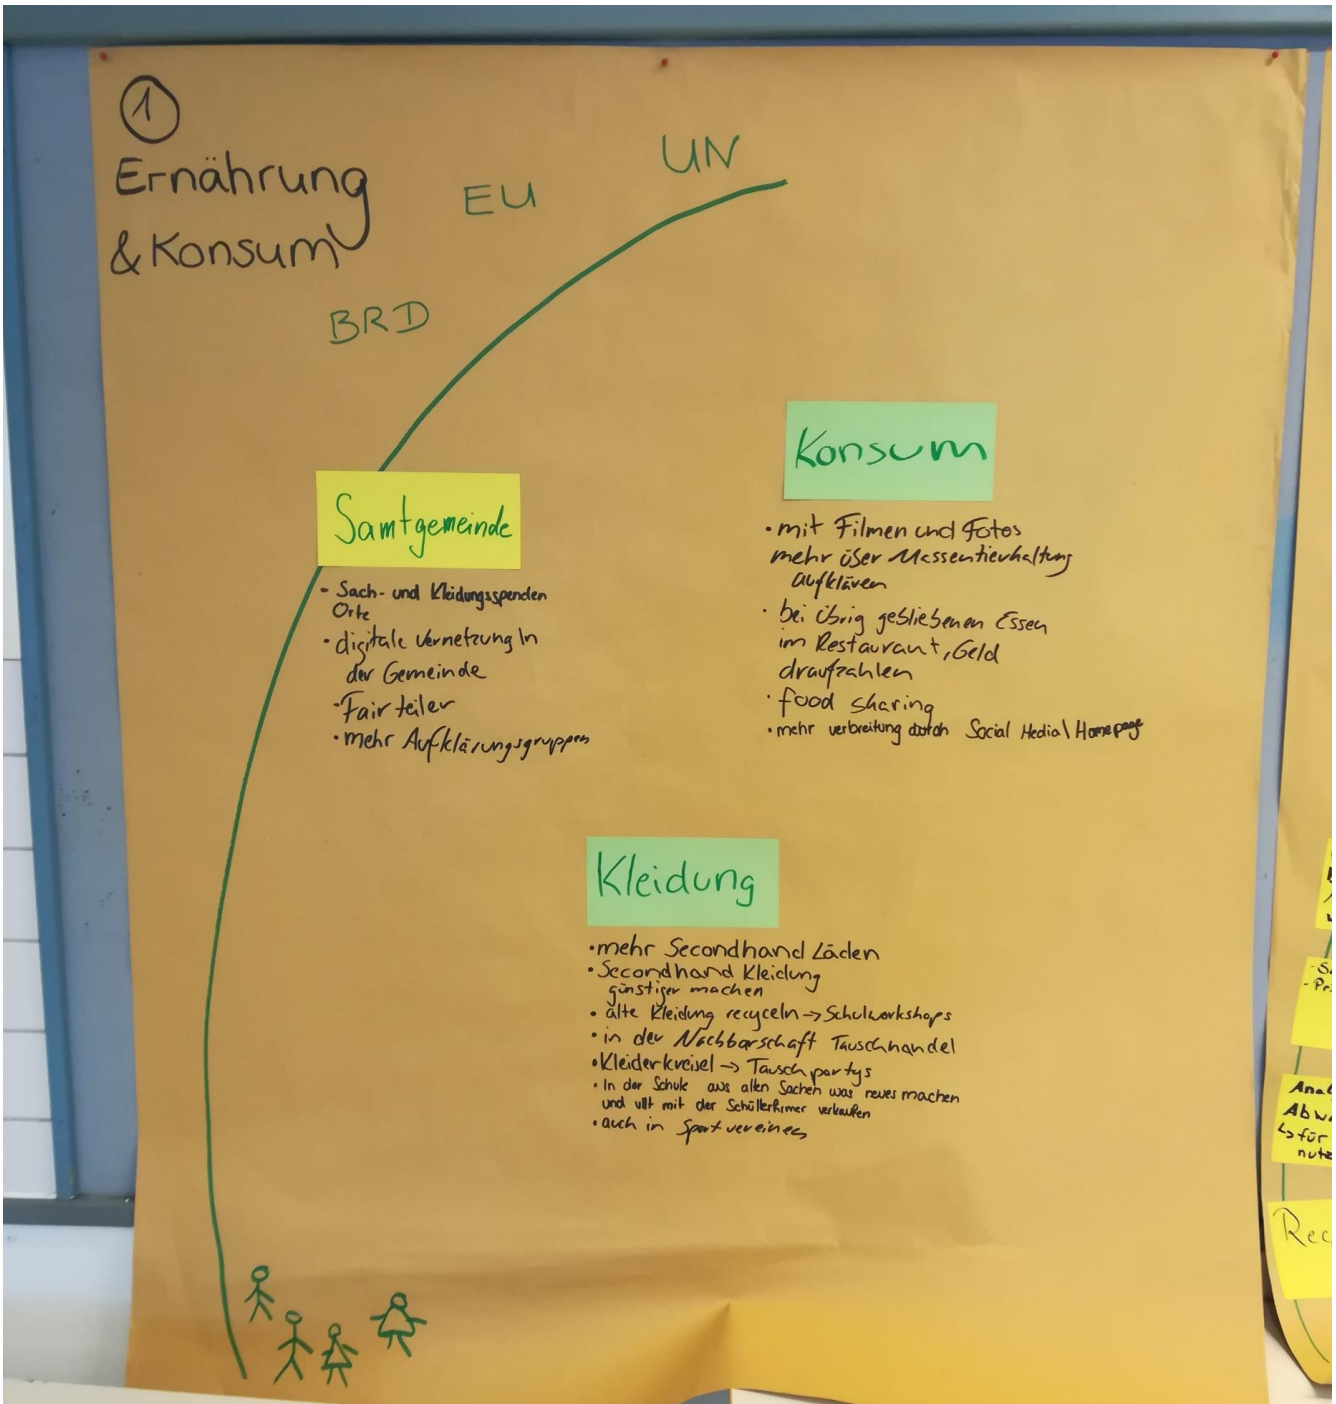 1
Ernährung
& Konsum
UN
EU
BRD
Samtgemeinde
- Sach- und Kleidungsspenden
Orte
• digitale Vernetzung in
der Gemeinde
- Fairteiler
• mehr Aufklärungsgruppen
Konsum
• mit Filmen und Fotos
mehr über Massentierhaltung
aufklären
• bei übrig gebliebenen Essen
im Restaurant, Geld
draufzahlen
• food sharing
• mehr verbreitung durch Social Media\Homepage
Kleidung
• mehr Secondhand Läden
• Secondhand Kleidung
günstiger machen
• alte Kleidung recyceln → Schulworkshops
• in der Nachbarschaft Tauschhandel
• Kleiderkreisel → Tauschpartys
• In der Schule aus alten Sachen was neues machen
und vllt mit der Schülerfirmer verkaufen
• auch in Sportvereinen
- Pr
Ana
Abw
↳ für
nutz
Rec